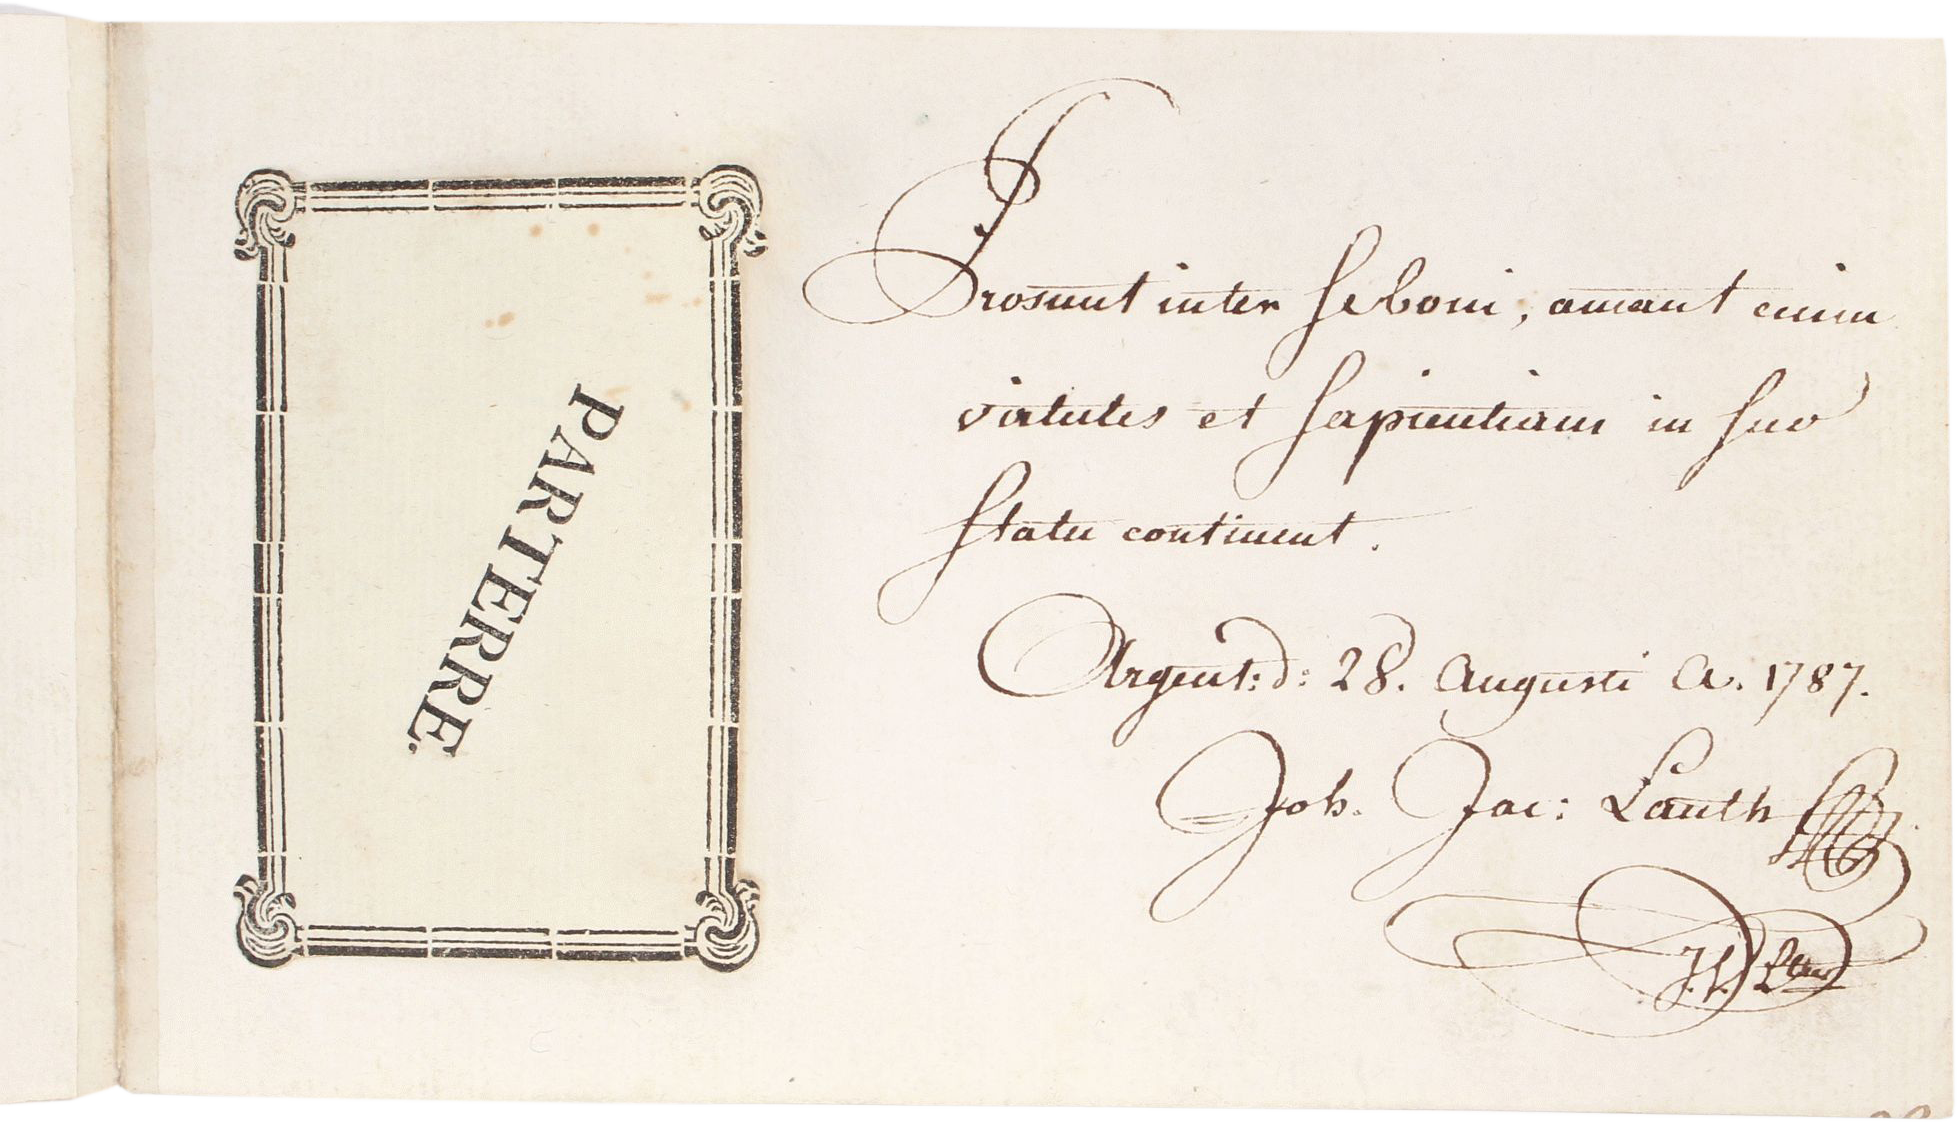 PARTERRE.
Prosunt inter se boni, amant enim
virtutes et sapientiam in suo
statu continent.
Argent: d: 28. Augusti A. 1787.
Joh. Jac: Lauth